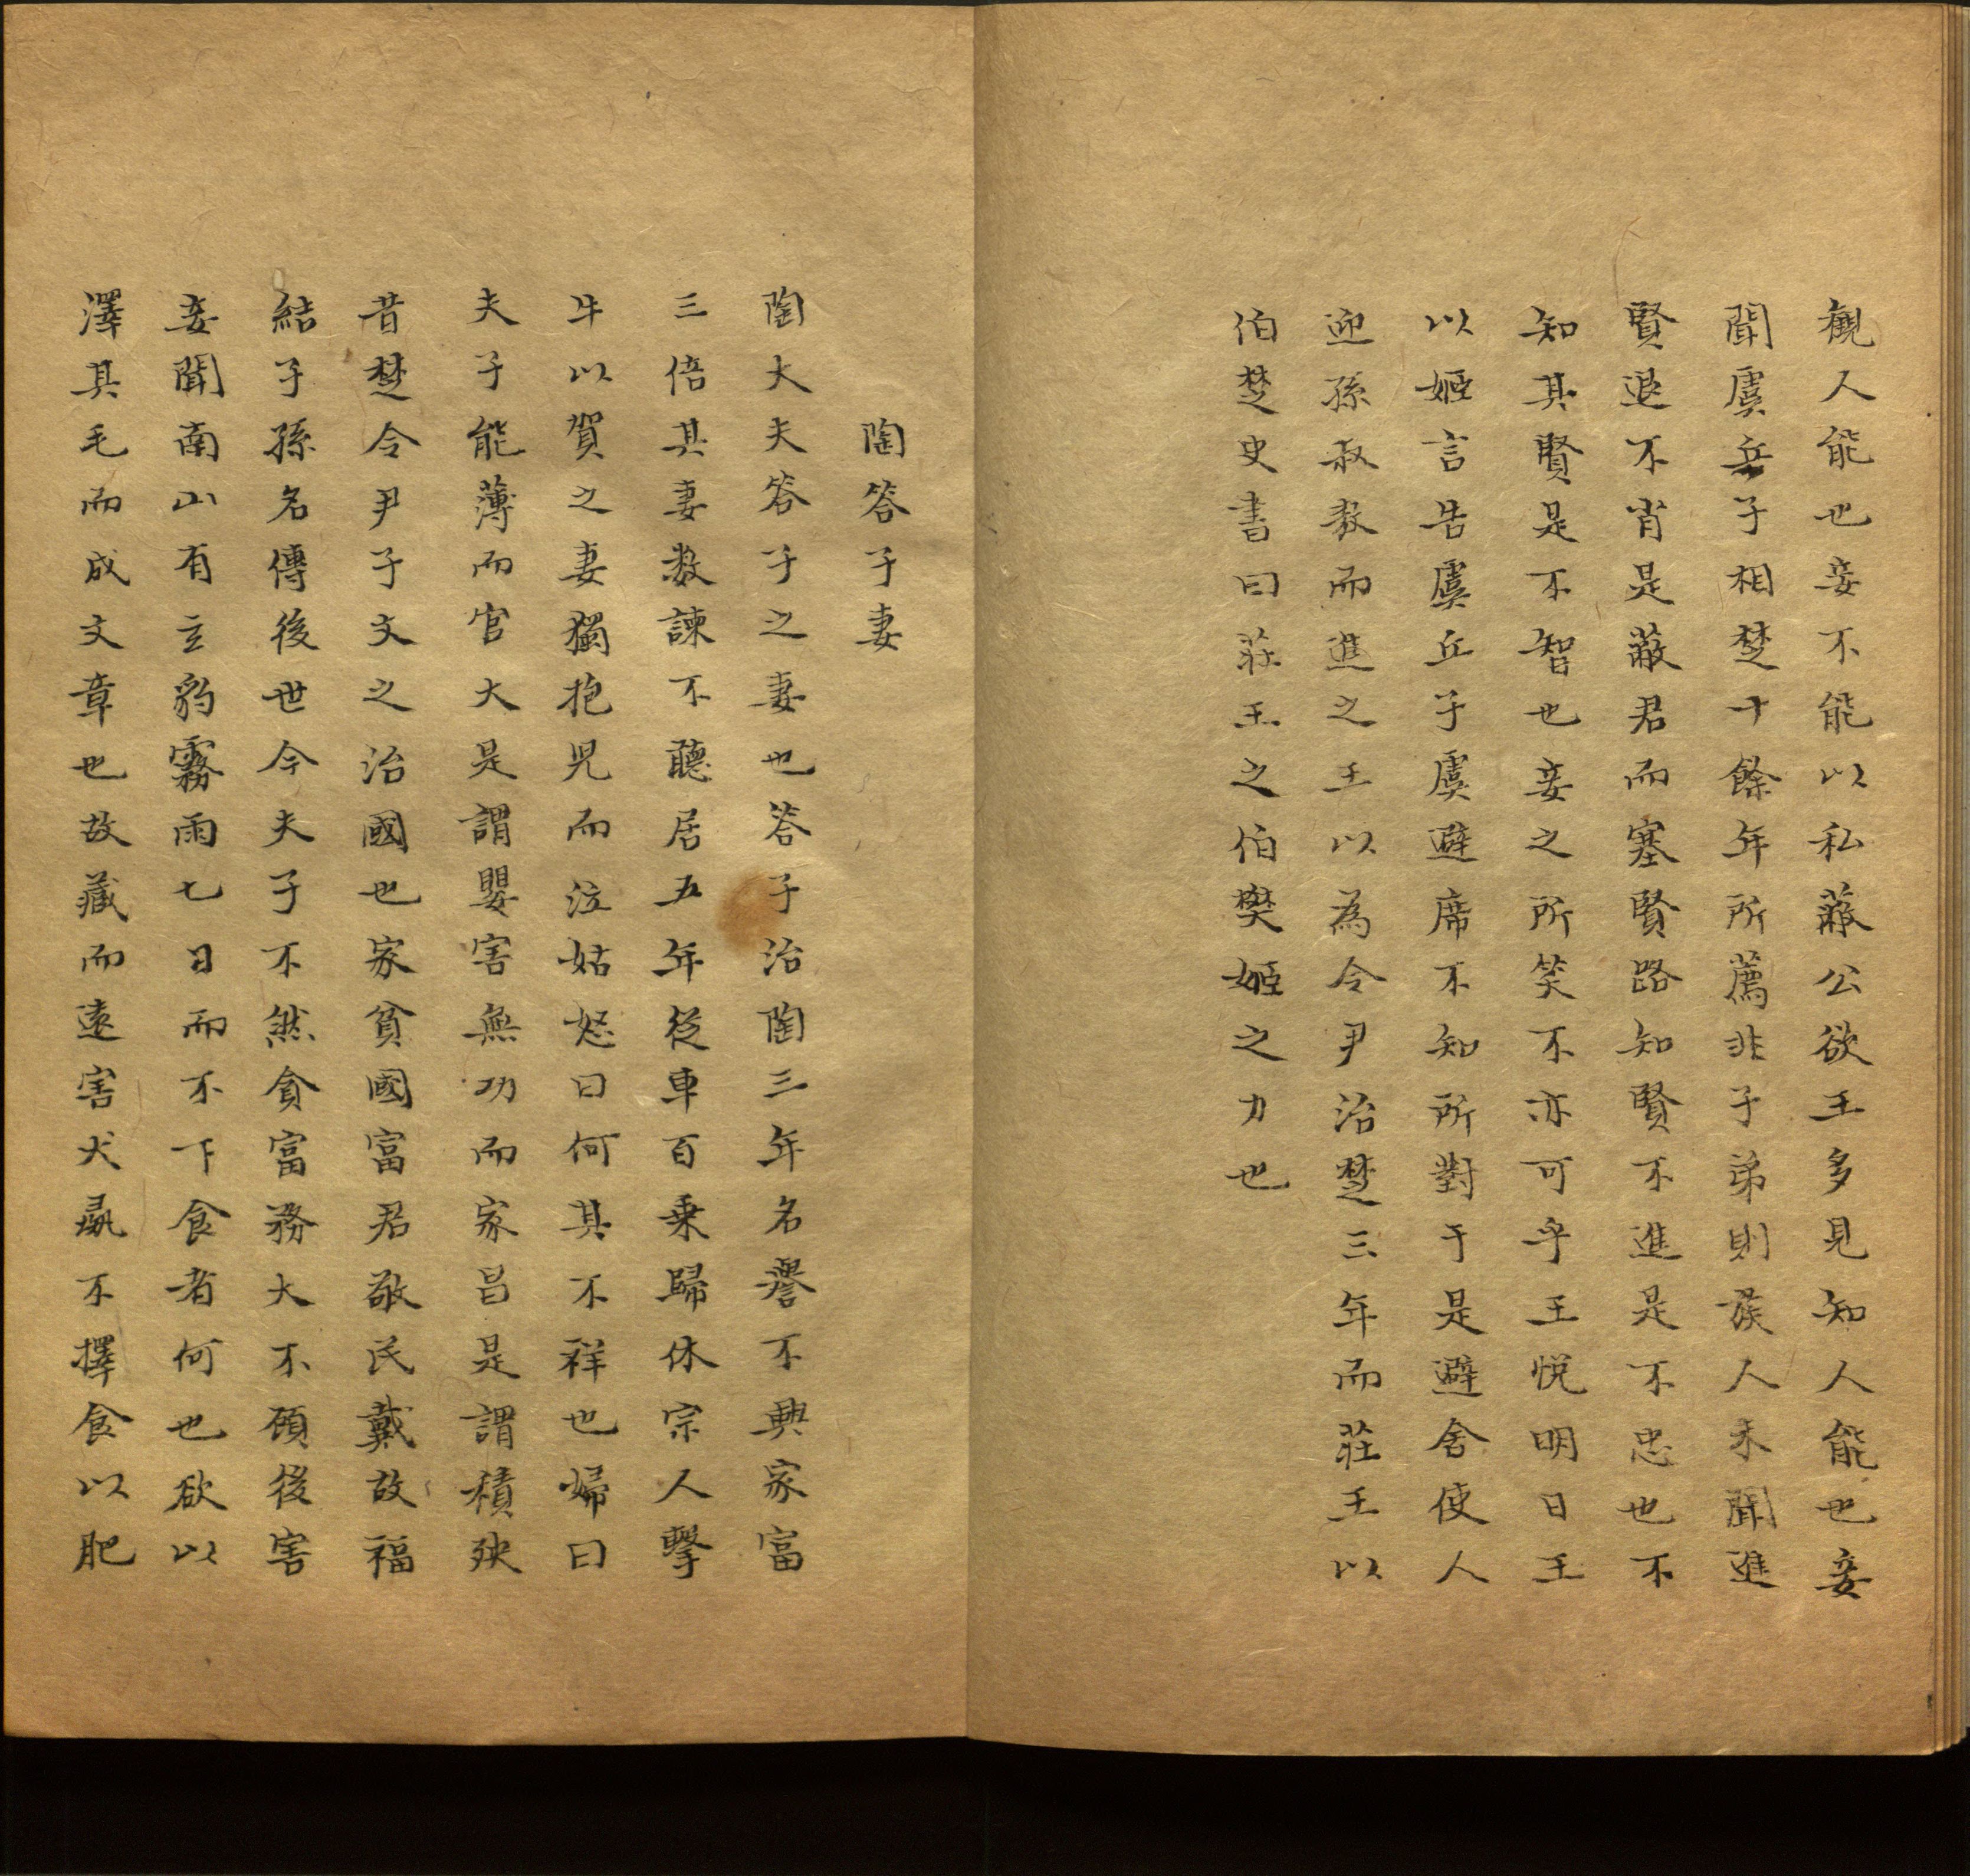 觀人能也妾不能以私蔽公欲王多見知人能也妾
聞虞丘子相楚十餘年所薦非子弟則族人未聞進
賢退不肖是蔽君而塞賢路知賢不進是不忠也不
知其賢是不智也妾之所笑不亦可乎王悅明日王
以姬言告虞丘子虞避席不知所對于是避舍使人
迎孫叔敖而進之王以為令尹治楚三年而莊王以
伯楚史書曰莊王之伯樊姬之力也
陶答子妻
陶大夫答子之妻也答子治陶三年名譽不興家富
三倍其妻數諫不聽居五年從車百乘歸休宗人擊
牛以賀之妻獨抱児而泣姑怒曰何其不祥也婦曰
夫子能薄而官大是謂嬰害無功而家昌是謂積殃
昔楚令尹子文之治國也家貧國富君敬民戴故福
結子孫名傳後世今夫子不然貪富務大不顧後害
妾聞南山有玄豹霧雨七日而不下食者何也欲以
澤其毛而成文章也故藏而遠害犬彘不擇食以肥